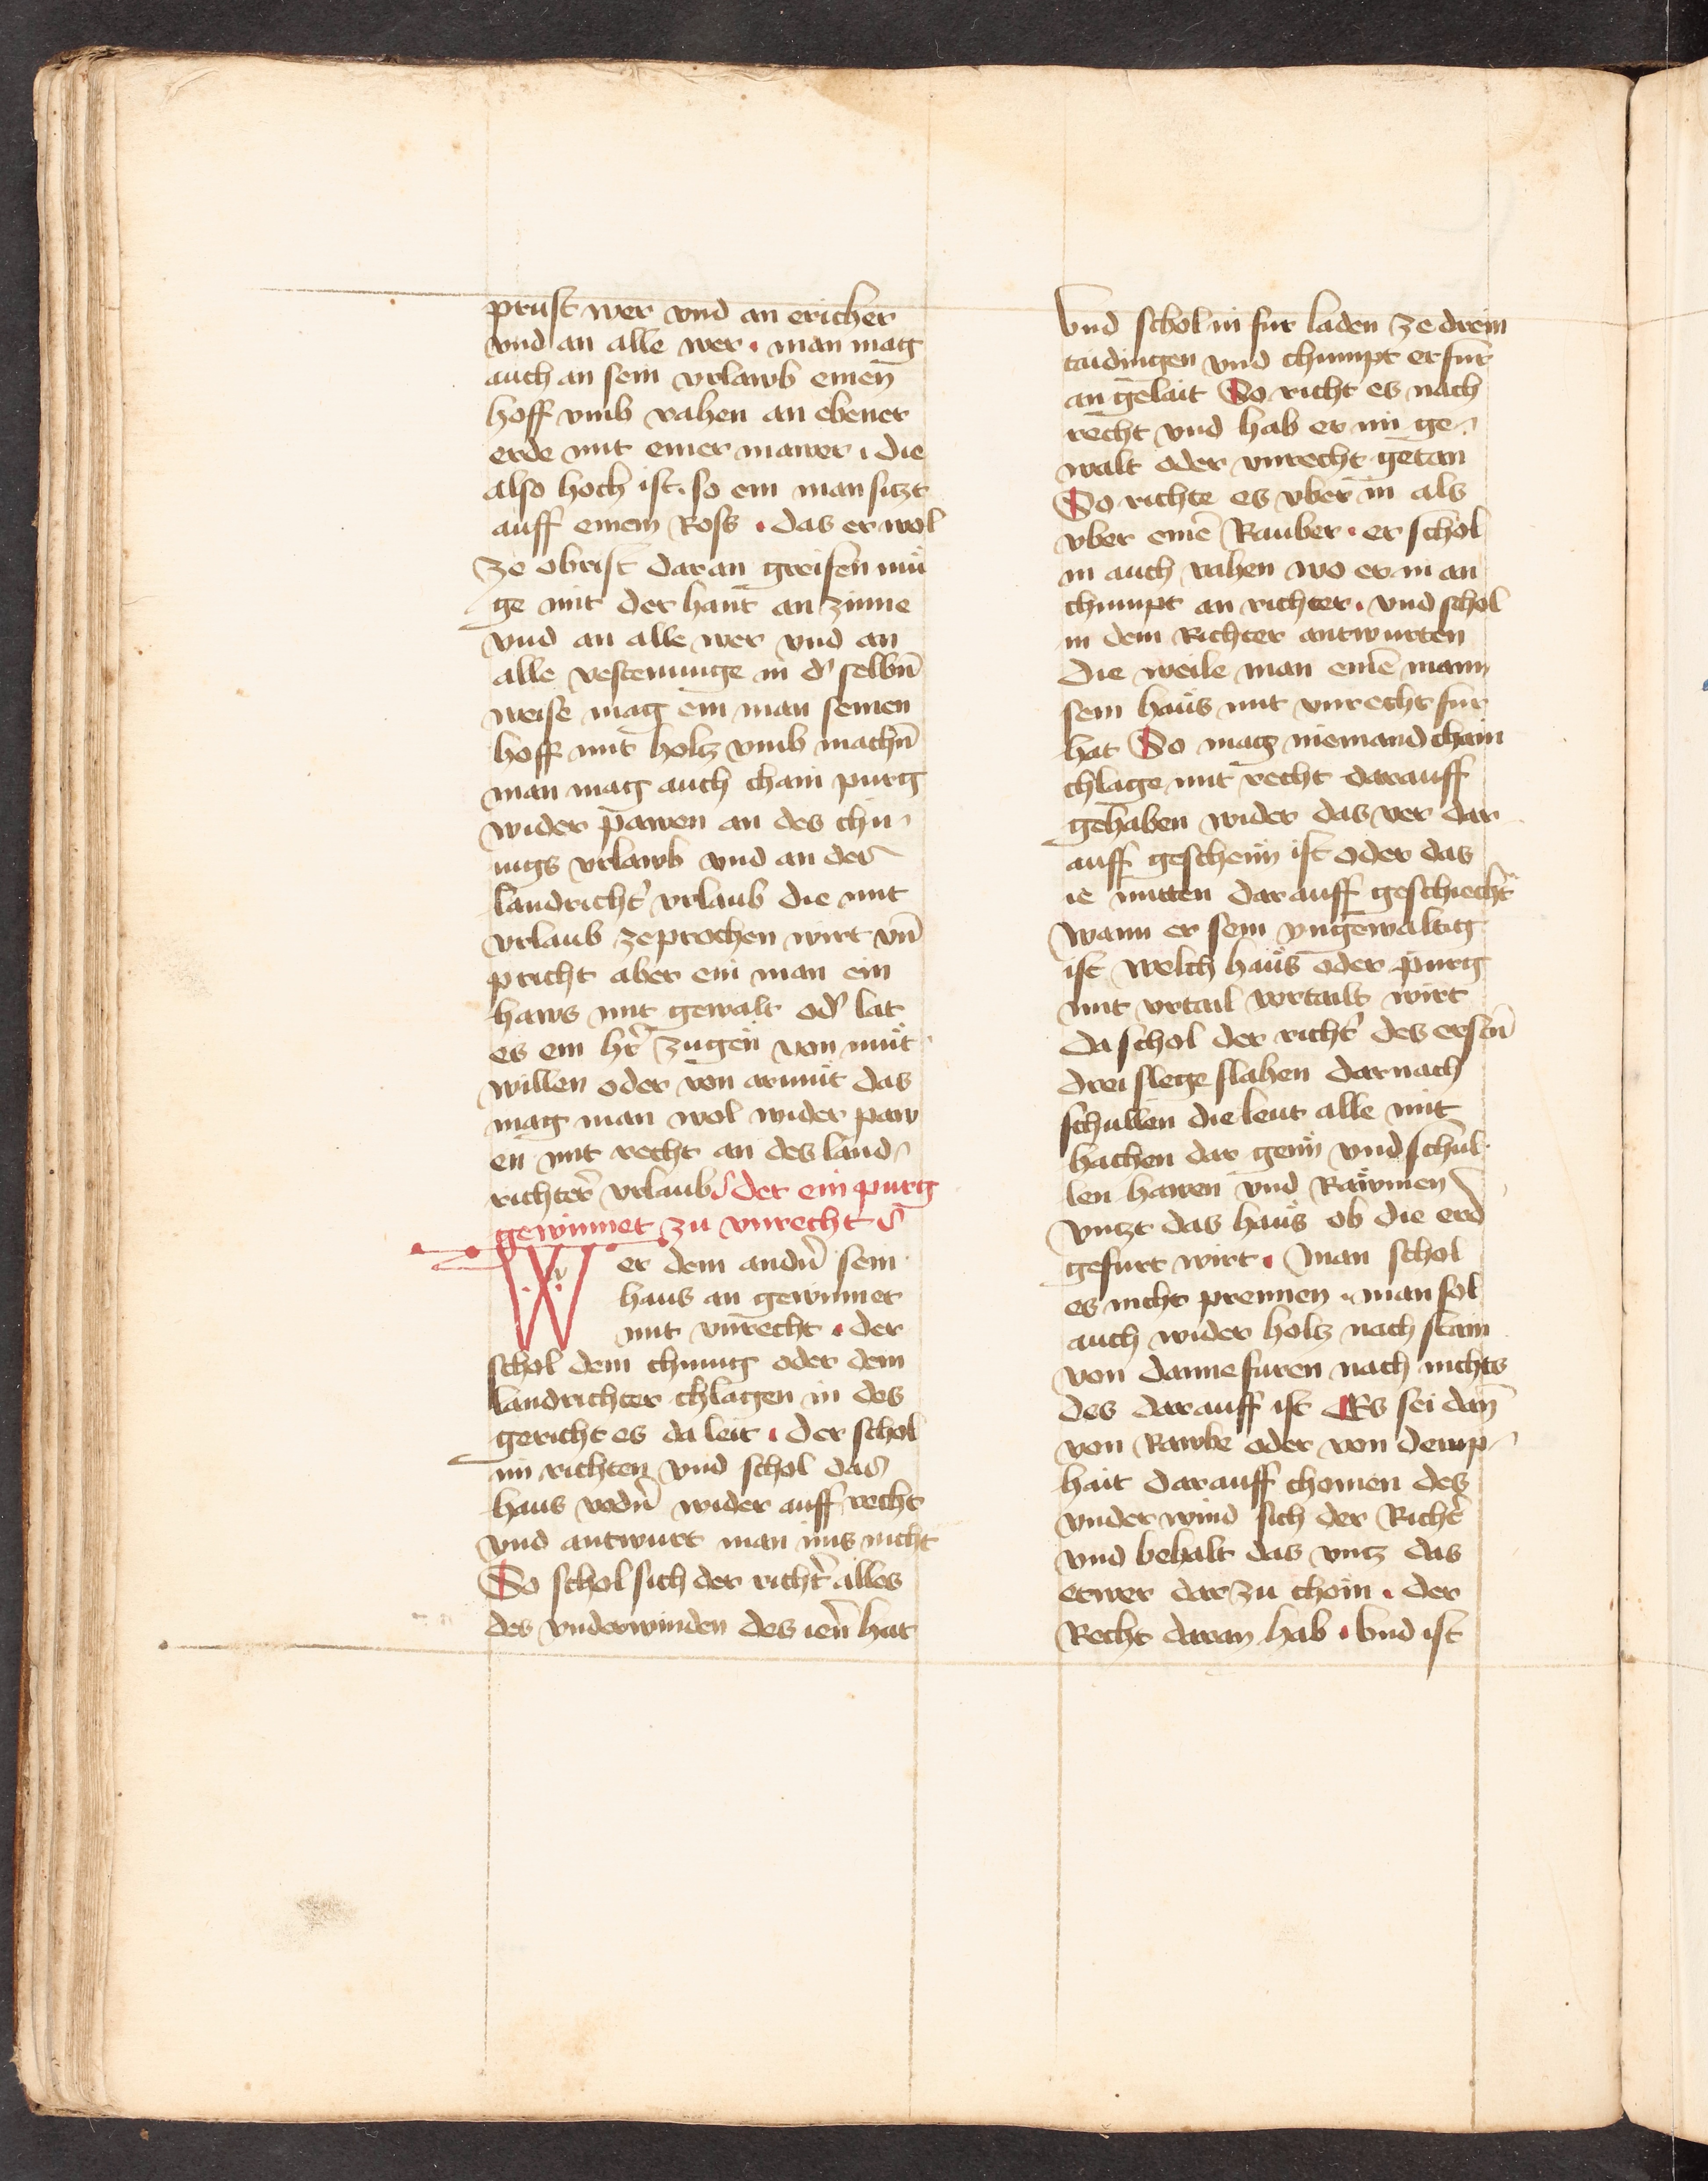 prust wer vnd an ericher
vnd an alle wer · man mag
auch an sein vrlawb einen̄
hoff vmb vahen an ebener
erde mit einer mawer · die
also hoch ist · so ein man sitzt
auff einem Ross · das er wol
ze obrist daran greifen mü
ge mit der hant an zinne
vnd an alle wer vnd an
alle vestenunge in d' selbn̄
weise mag ein man seinen
hoff mit holtz vmb machn̄
man mag auch chain purg
wider pawen an des chu-
nigs vrlawb vnd an der
landricht' vrlaub die mit
vrlaub zeprochen wirt vn̄
pricht aber ein man ein
haws mit gewalt od' lat
es ein hr̄ zugen von müt
willen oder von armüt das
mag man wol wider paw
en mit recht an des land-
richter' vrlaub der ein purg
gewinnet zu vnrecht
Wer dem andn̄ sein
haus an gewinnet
mit vnrecht · der
schol dem chunig oder dem
landrichter chlagen in des
gericht es da leit · der schol
im richten vnd schol das
haus vodn̄ wider auff recht
vnd antwurt man ims nicht
So schol sich der richt' alles
des vnderwinden des ien̄ hat
Vnd schol in fur laden ze drein
taidingen vnd chumpt er fur
an gelait So richt es nach
recht vnd hab er im ge-
walt oder vnrecht getan
So richte es vber in als
vber eine̅ Rauber · er schol
in auch vahen wo er in an
chumpt an richter · vnd schol
in dem Richter antwurten
die weile man eine̅ mann
sein haüs mit vnrecht fur
hat So mag niemand chain
chlage mit recht darauff
gehaben wider das ver dar
auff geschenn ist oder das
ie mitten darauff geschiecht
wann er sein vngewaltig
ist welch haüs oder purg
mit vrtail vertailt wirt
da schol der richt' des erstn̄
drei slege slahen darnach
schullen die leut alle mit
hachen dar genn vnd schul-
len hawen vnd Raẅmen
vntzt das haüs ob die erd
gefurt wirt · Man schol
es nicht prennen · man sol
auch wider holtz nach stain
von danne furen nach nichts
des darauff ist Es sei dan̄
von Rawbe oder von deup-
hait darauff chomen des
vnder wind sich der Richt'
vnd behalt das vntz das
etwer dar zu chom · der
Recht daran hab · Vnd ist